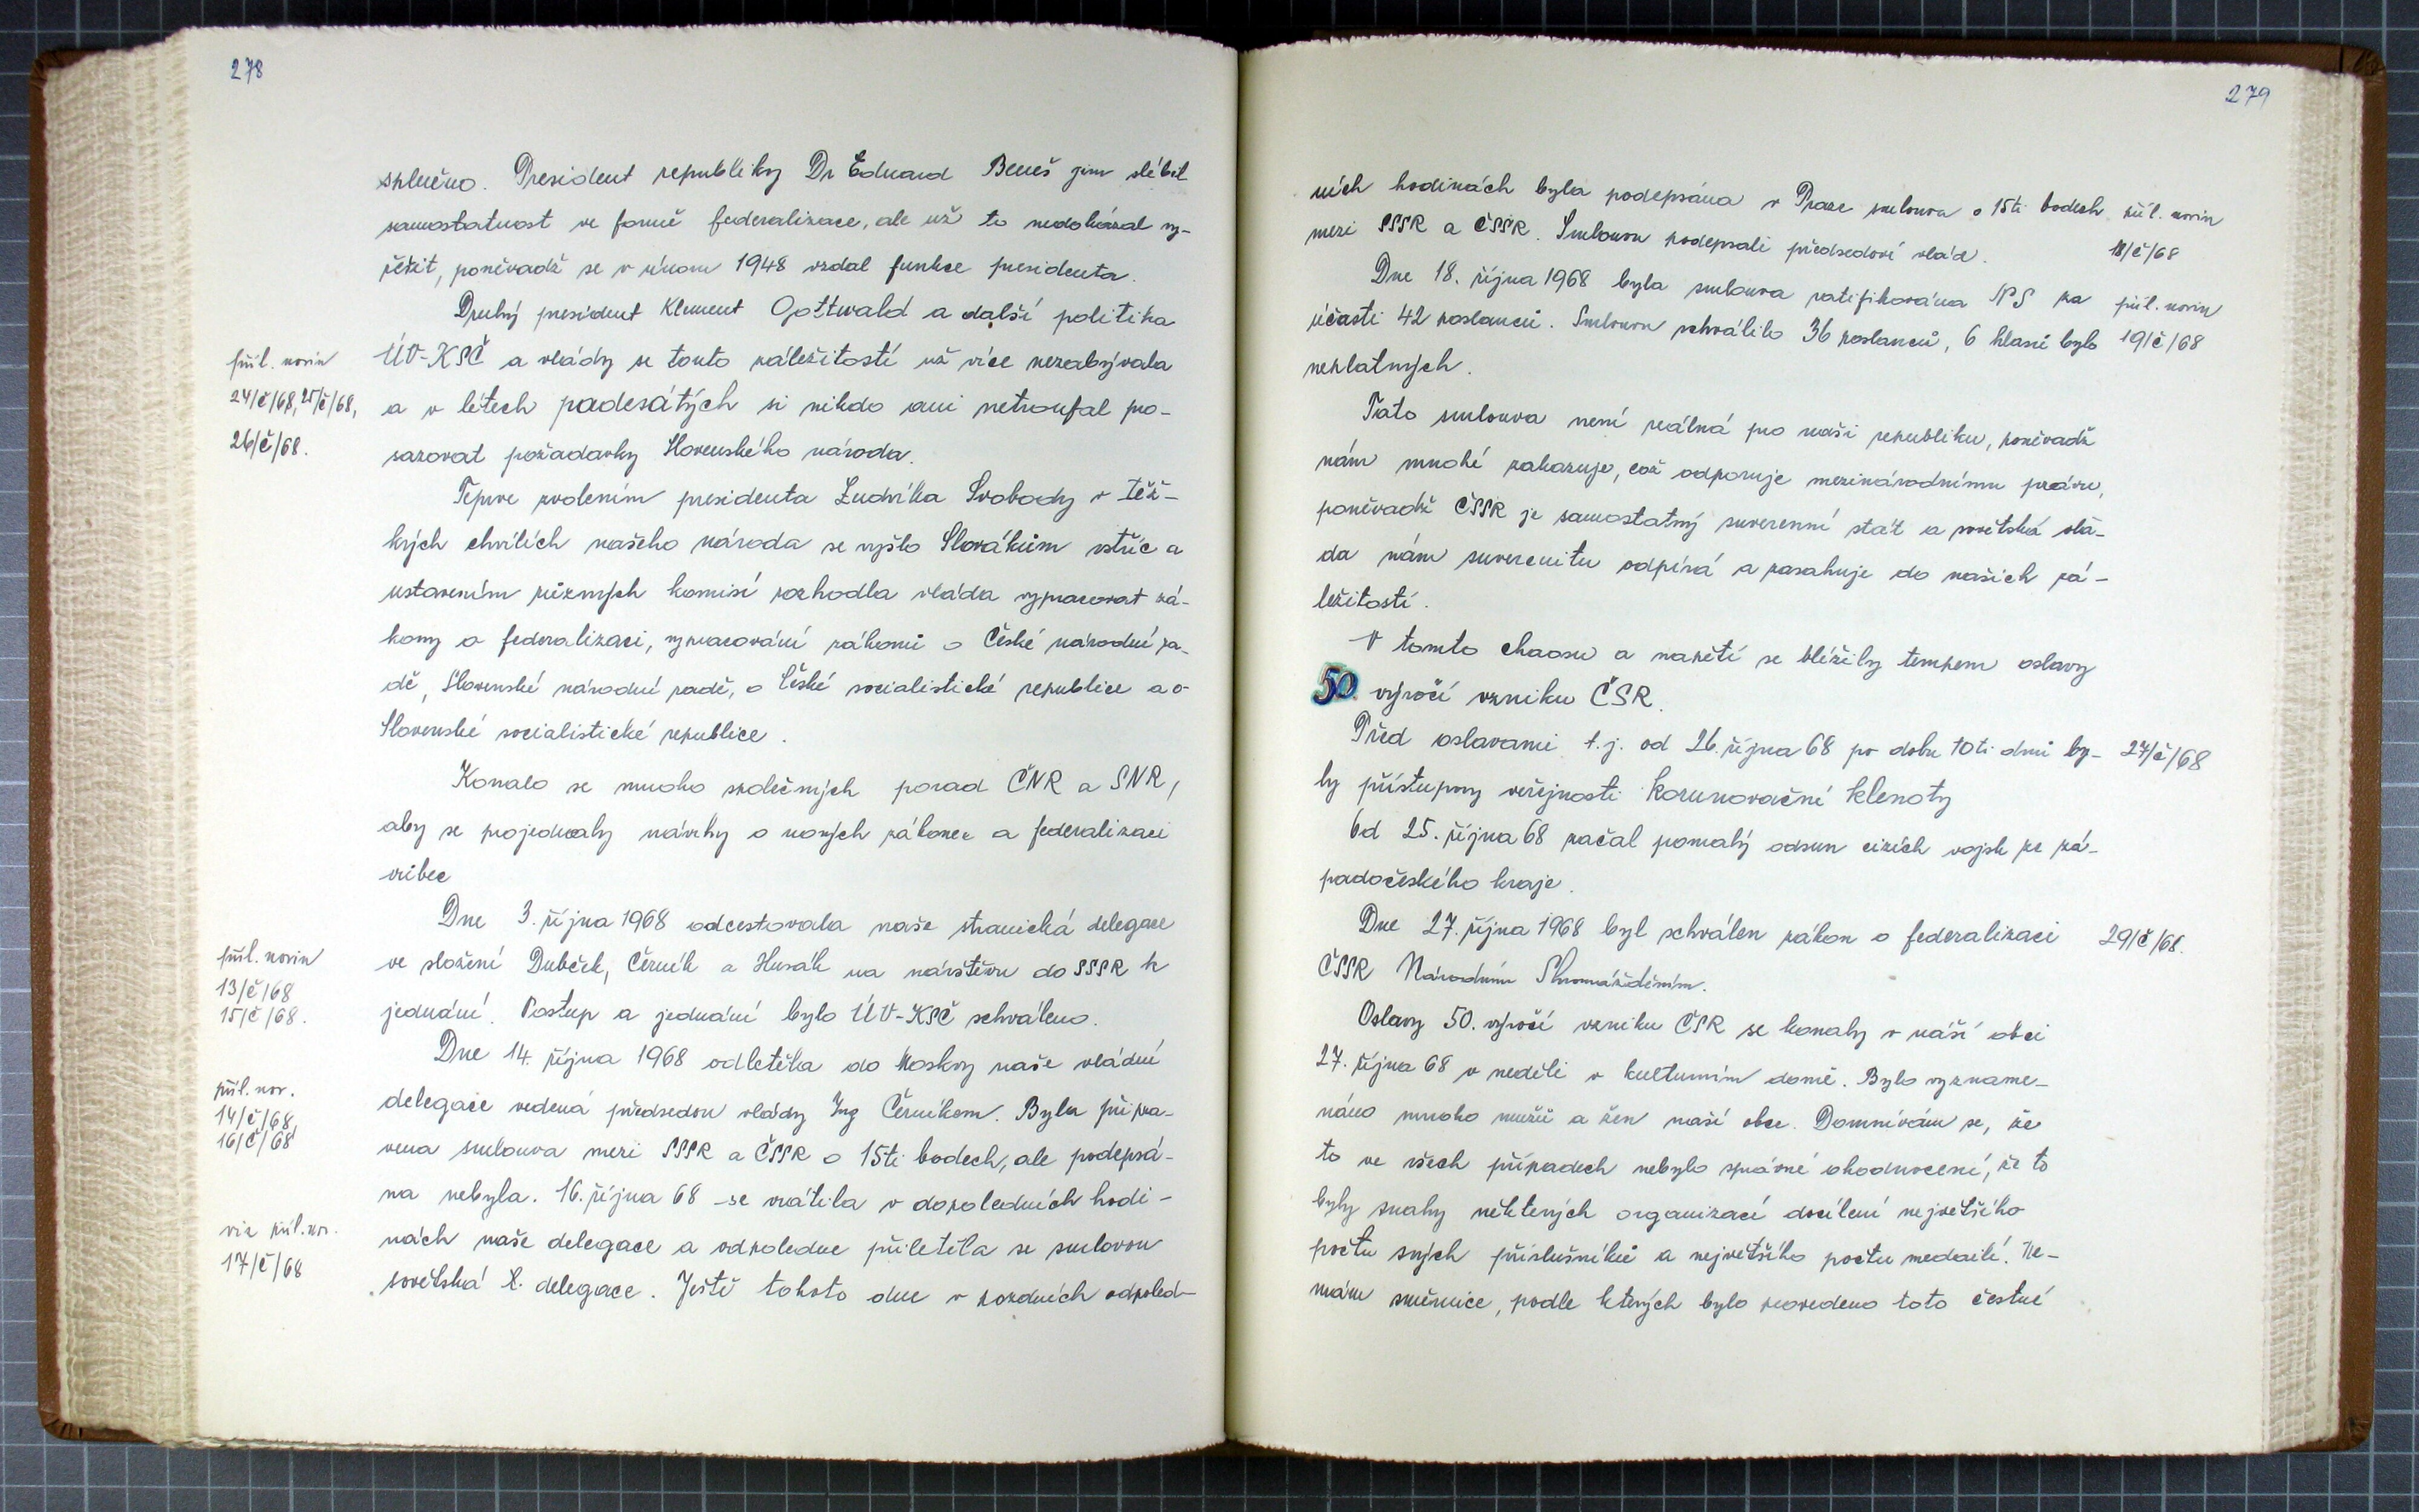 278
splněno. President republiky Dr Eduard Beneš jim slíbil
samostatnost ve formě federalizace, ale už to nedokázal vy-
řešit, poněvadž se v únoru 1948 vzdal funkce presidenta.
Druhý president Klement Gottwald a další politika
příl. novin
ÚV-KSČ a vlády se touto záležitostí už více nezabývala
24/č/68, 25/č/68,
a v létech padesátých si nikdo ani netroufal pro-
26/č/68.
sazovat požadavky Slovenského národa.
Teprve zvolením presidenta Ludvíka Svobody v těž-
kých chvílích našeho národa se vyšlo Slovákům vstříc a
ustavením různých komisí rozhodla vláda vypracovat zá-
kony o federalizaci, vypracování zákonů o České národní ra-
dě, Slovenské národní radě, o České socialistické republice a o-
Slovenské socialistické republice.
Konalo se mnoho společných porad ČNR a SNR,
aby se projednaly návrhy o nových zákonec a federalizaci
vůbec
Dne 3. října 1968 odcestovala naše stranická delegace
příl. novin
ve složení Dubček, Černík a Husák na návštěvu do SSSR k
13/č/68
15/č/68.
jednání. Postup a jednání bylo ÚV-KSČ schváleno.
Dne 14. října 1968 odletěla do Moskvy naše vládní
příl. nov.
delegace vedená předsedou vlády Ing Černíkem. Byla připra-
14/č/68,
16/č/68
vena smlouva mezi SSSR a ČSSR o 15ti bodech, ale podepsá-
na nebyla. 16. října 68 se vrátila v dopoledních hodi-
viz příl. nov.
nách naše delegace a odpoledne přiletěla se smlovou
17/č/68
sovětská delegace. Ještě tohoto dne v pozdních odpoled-
279
ních hodinách byla podepsána v Praze smlouva o 15ti bodech
příl. novin
mezi SSSR a ČSSR. Smlouvu podepsali předsedové vlád.
18/č/68
Dne 18. října 1968 byla smlouva ratifikována NS za
příl. novin
účasti 42 poslanců. Smlouvu schválilo 36 poslanců, 6 hlasů bylo
19/č/68
neplatných.
Tato smlouva není reálná pro naši republiku, poněvadž
nám mnohé zakazuje, což odporuje mezinárodnímu právu,
poněvadž ČSSR je samostatný suverenní stát a sovětská vlá-
da nám suverenitu odpírá a zasahuje do našich zá-
ležitostí.
V tomto chaosu a napětí se blížily tempem oslavy
50. výročí vzniku ČSR.
Před oslavami t.j. od 26. října 68 po dobu 10ti dnů by-
27/č/68
ly přístupny veřejnosti korunovační klenoty
Od 25. října 68 začal pomalý odsun cizích vojsk ze zá-
padočeského kraje.
Dne 27. října 1968 byl schválen zákon o federalizaci
29/č/68.
ČSSR Národním Shromážděním.
Oslavy 50. výročí vzniku ČSR se konaly v náší obci
27. října 68 v neděli v kulturním domě. Bylo vyzname-
náno mnoho mužů a žen naší obce. Domnívám se, že
to ve všech případech nebylo správné ohodnocení, že to
byly snahy některých organizací docílení největšího
počtu svých příslušníků a největšího počtu medailí. Ne-
mám směrnice, podle kterých bylo provedeno toto čestné